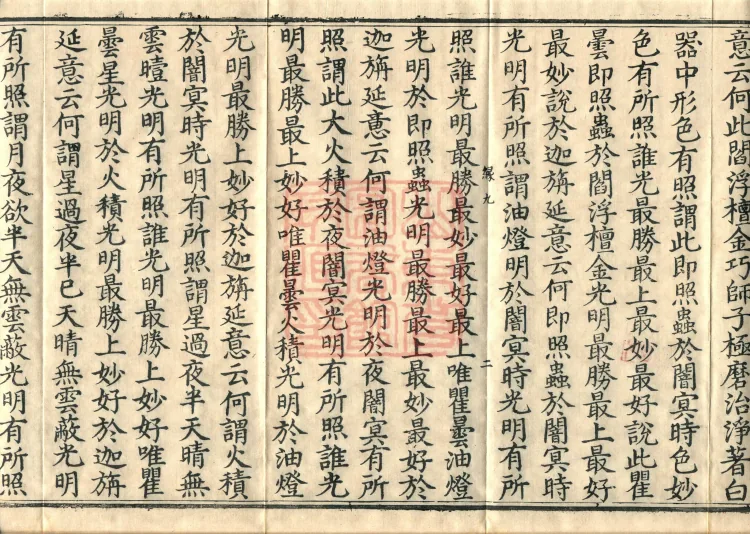 意云何此閻浮檀金巧師子極磨治淨著白
器中形色有照謂此即照蟲於闇冥時色妙
色有所照誰光最勝最上最妙最好說此瞿
曇即照蟲於閻浮檀金光明最勝最上最好
最妙說於迦旃延意云何即照蟲於闇冥時
光明有所照謂油燈明於闇冥時光明有所
緣九 二
照誰光明最勝最妙最好最上唯瞿曇油燈
光明於即照蟲光明最勝最上最妙最好於
迦旃延意云何謂油燈光明於夜闇冥有所
照謂此大火積於夜闇冥光明有所照誰光
明最勝最上妙好唯瞿曇火積光明於油燈
光明最勝上妙好於迦旃延意云何謂火積
於闇冥時光明有所照謂星過夜半天晴無
雲曀光明有所照誰光明最勝上妙好唯瞿
曇星光明於火積光明最勝上妙好於迦旃
延意云何謂星過夜半已天晴無雲蔽光明
有所照謂月夜欲半天無雲蔽光明有所照